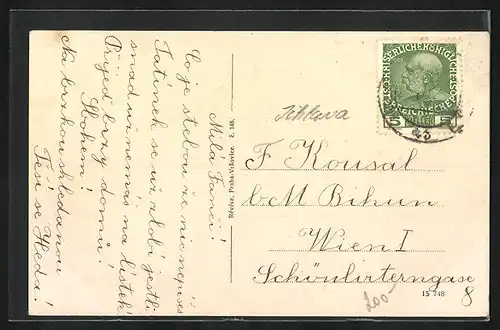 Milá Fanči!
Co je s tebou že nic nepíšeš
Tatínek se už zlobí jestli
snad už nemáš na lístek
Přijeď brzy domů!
Sbohem!
Na brzkou shledanou
Těší se Heda!
Révész, Praha-Vršovice. Z. 146.
KAISERLICHE KÖNIGLICHE
5 5
Jihlava
F Kousal
bei M Bihun
Wien I
Schönlaterngase
8
200
15 748